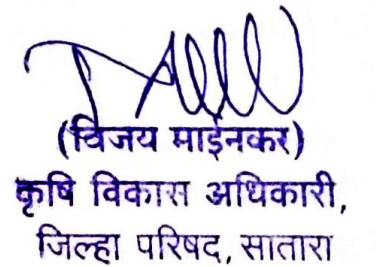 (विजय माईनकर)
कृषि विकास अधिकारी,
जिल्हा परिषद, सातारा